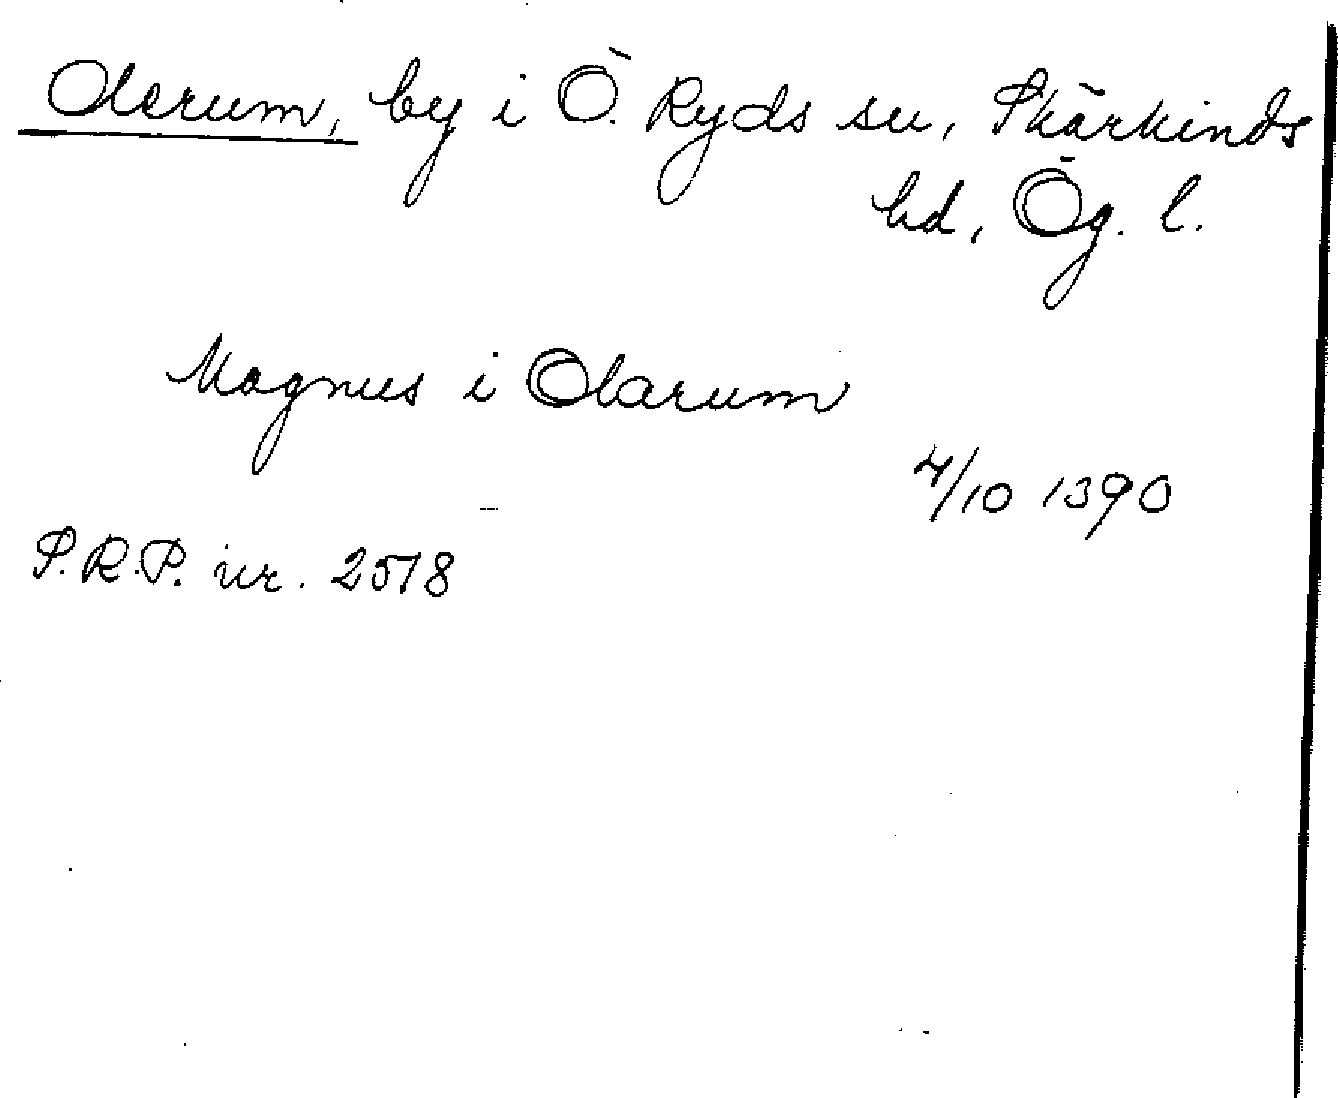 Olerum, by i Ö. Ryds sn, Skärkinds
hd, Ög. l.
Magnus i Olarum
4/10 1390
S.R.P. nr. 2578